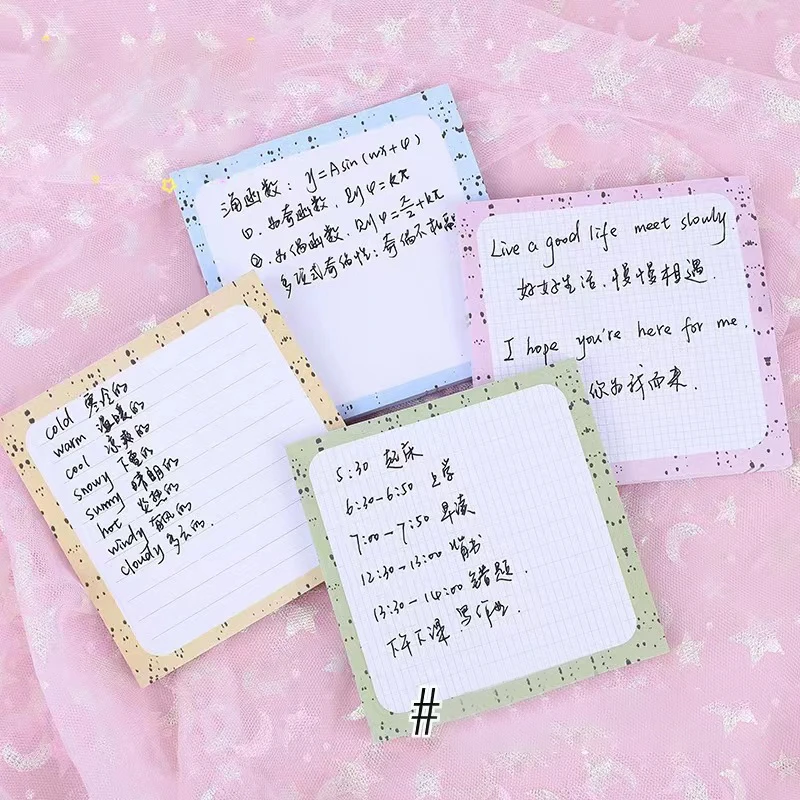 函数: y=Asin(wx+φ)
①. 为奇函数. 则φ=kπ
②. 为偶函数. 则φ=π/2+kπ
多项式奇偶性: 奇偶不
Live a good life meet slowly.
好好生活、慢慢相遇.
I hope you're here for me.
你为我而来.
cold 寒冷的
warm 温暖的
cool 凉爽的
snowy 下雪的
sunny 晴朗的
hot 炎热的
windy 有风的
cloudy 多云的.
5:30 起床
6:30-6:50 上学
7:00-7:50 早读
12:30-13:00 背书
13:30-14:00 错题.
下午下课 写作业.
#